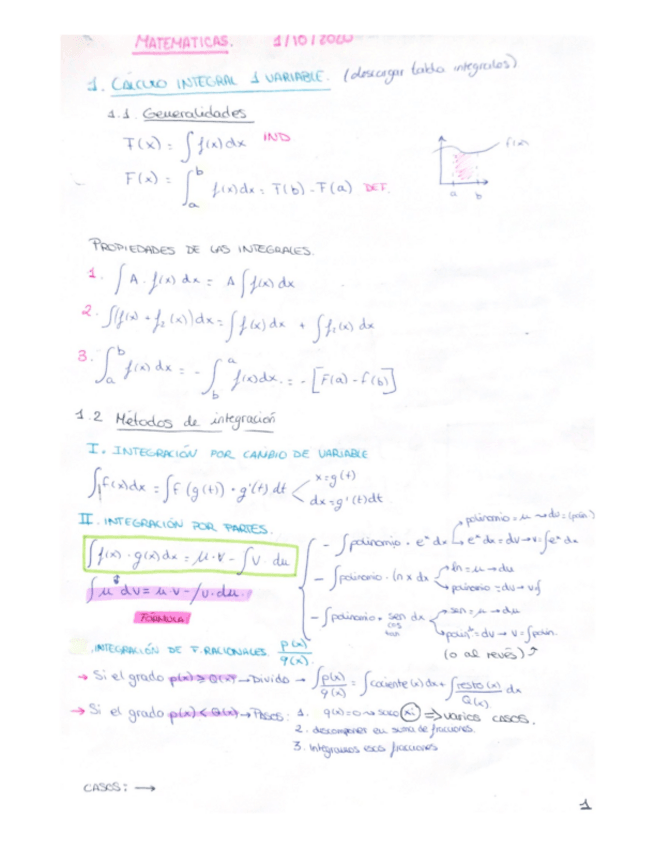 MATEMATICAS. 1/10/2020
1. CÁLCULO INTEGRAL 1 VARIABLE. (descargar tabla integrales)
1.1. Generalidades
F(x) = ∫ f(x) dx IND
F(x) = ∫_a^b f(x) dx = F(b) - F(a) DEF.
f(x)
a b
PROPIEDADES DE LAS INTEGRALES.
1. ∫ A · f(x) dx = A ∫ f(x) dx
2. ∫(f(x) + f₂(x)) dx = ∫ f(x) dx + ∫ f₂(x) dx
3. ∫_a^b f(x) dx = - ∫_b^a f(x) dx = - [F(a) - f(b)]
1.2 Métodos de integración
I. INTEGRACIÓN POR CAMBIO DE VARIABLE
∫ f(x) dx = ∫ f(g(t)) · g'(t) dt < x = g(t)
dx = g'(t) dt
II. INTEGRACIÓN POR PARTES.
∫ f(x) · g(x) dx = μ · v - ∫ v · du
∫ μ dv = μ · v - ∫ v · du.
FÓRMULA
polinomio = μ → du = (polin.)
- ∫ polinomio · eˣ dx → eˣ dx = dv → v = ∫ eˣ dx
- ∫ polinomio · ln x dx → ln = μ → du
→ polinomio = dv → v ∫
- ∫ polinomio · sen dx → sen = μ → du
cos
tan
→ polin = dv → v = ∫ polin.
(o al revés) ↑
INTEGRACIÓN DE F. RACIONALES. p(x)/q(x).
→ Si el grado p(x) ≥ Q(x) → Divido → ∫ p(x)/q(x) = ∫ cociente (x) dx + ∫ resto (x)/Q(x) dx
→ Si el grado p(x) < Q(x) → PASOS: 1. q(x) = 0 → saco xi ⇒ varios CASOS.
2. descomponer en suma de fracciones.
3. Integramos esas fracciones
CASOS: →
1